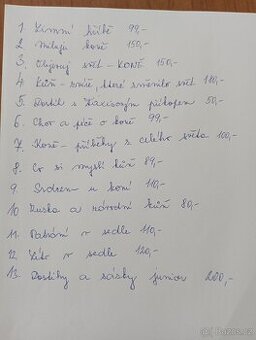 1. Zimní hříbě 99,-
2. Miluji koně 150,-
3. Objevuj svět - KONĚ 150,-
4. Kůň - zvíře, které změnilo svět 180,-
5. Dostih s Taxisovým příkopem 50,-
6. Chov a péče o koně 99,-
7. Koně - příběhy z celého světa 100,-
8. Co si myslí kůň 89,-
9. Srdcem u koní 110,-
10 a národní kůň 80,-
11. Pátrání v sedle 110,-
12. Léto v sedle 120,-
13. Dostihy a sázky junior 200,-
bazos.cz